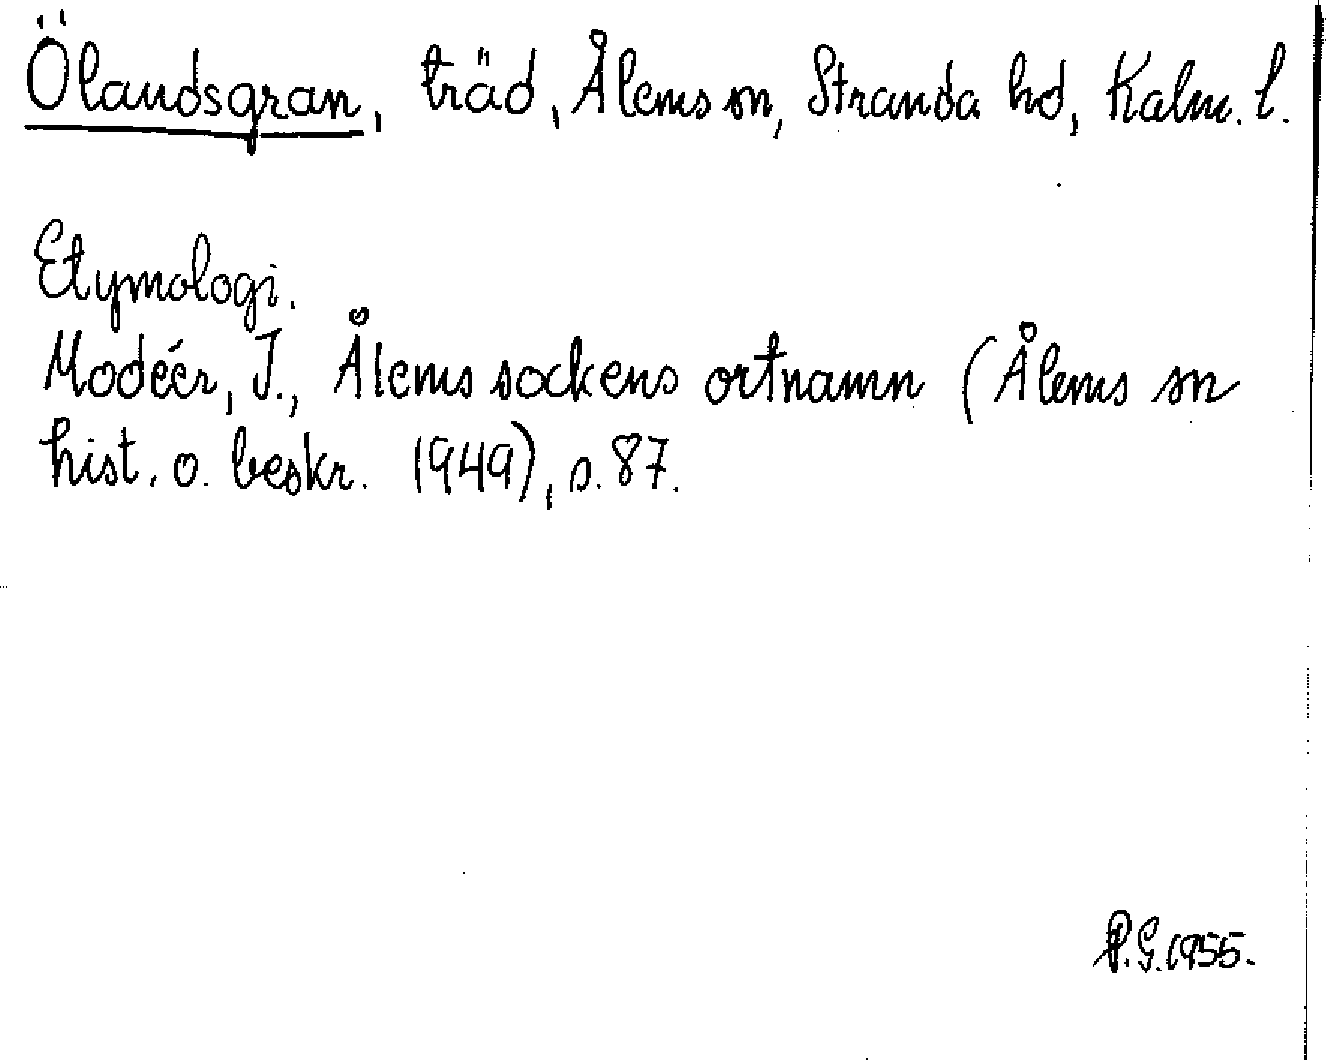 Ölandsgran, träd, Ålems sn, Stranda hd, Kalm. l.
Etymologi.
Modéer, I., Ålems sockens ortnamn (Ålems sn
hist. o. beskr. 1949), s. 87.
P.G. 1955.